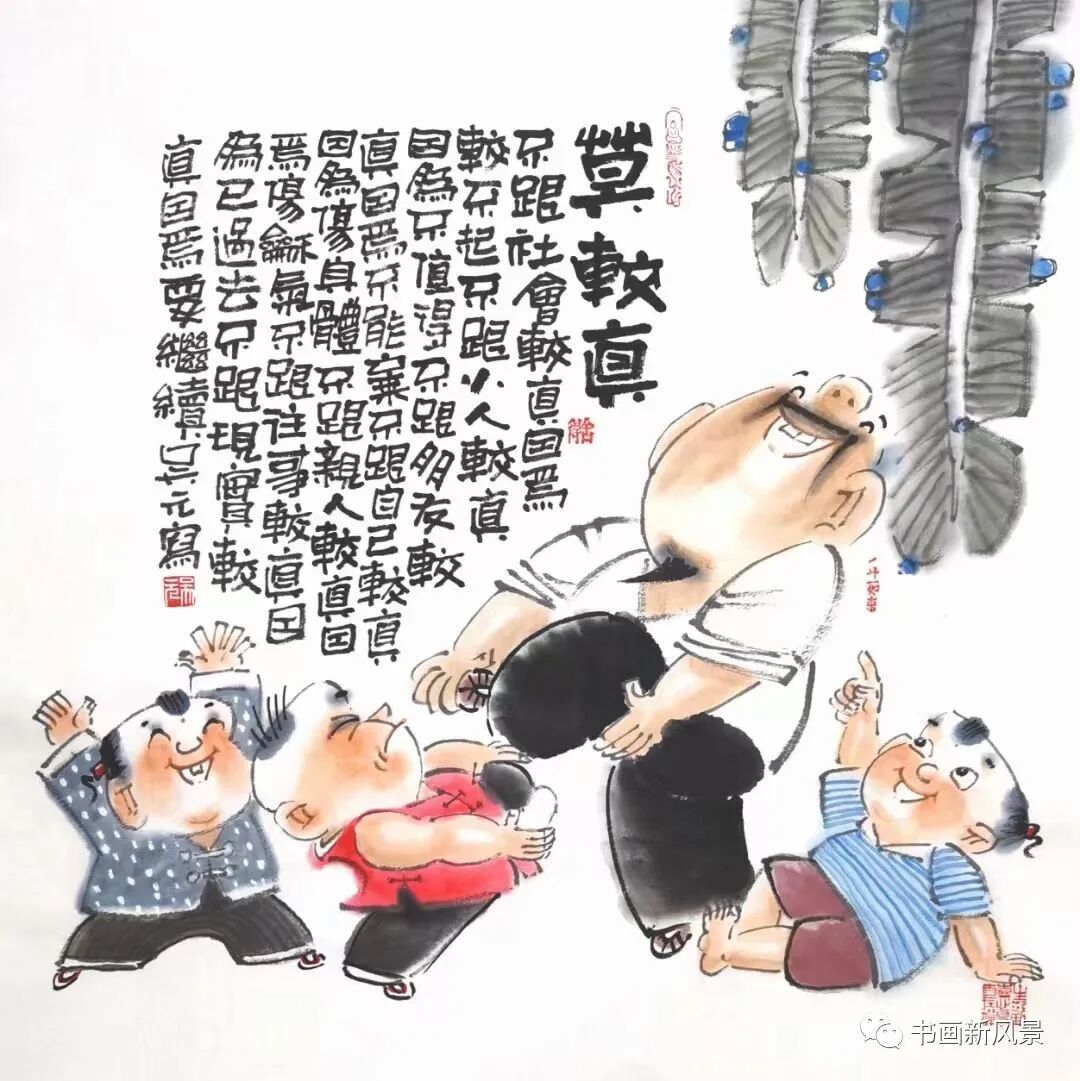 莫較真
不跟社會較真因爲
較不起不跟小人較真
因為不值得不跟朋友較
真因爲不能棄不跟自己較真
因為傷身體不跟親人較真因
爲傷龢氣不跟往事較真因
為已過去不跟現實較
真因爲要繼續吴元寫
书画新风景